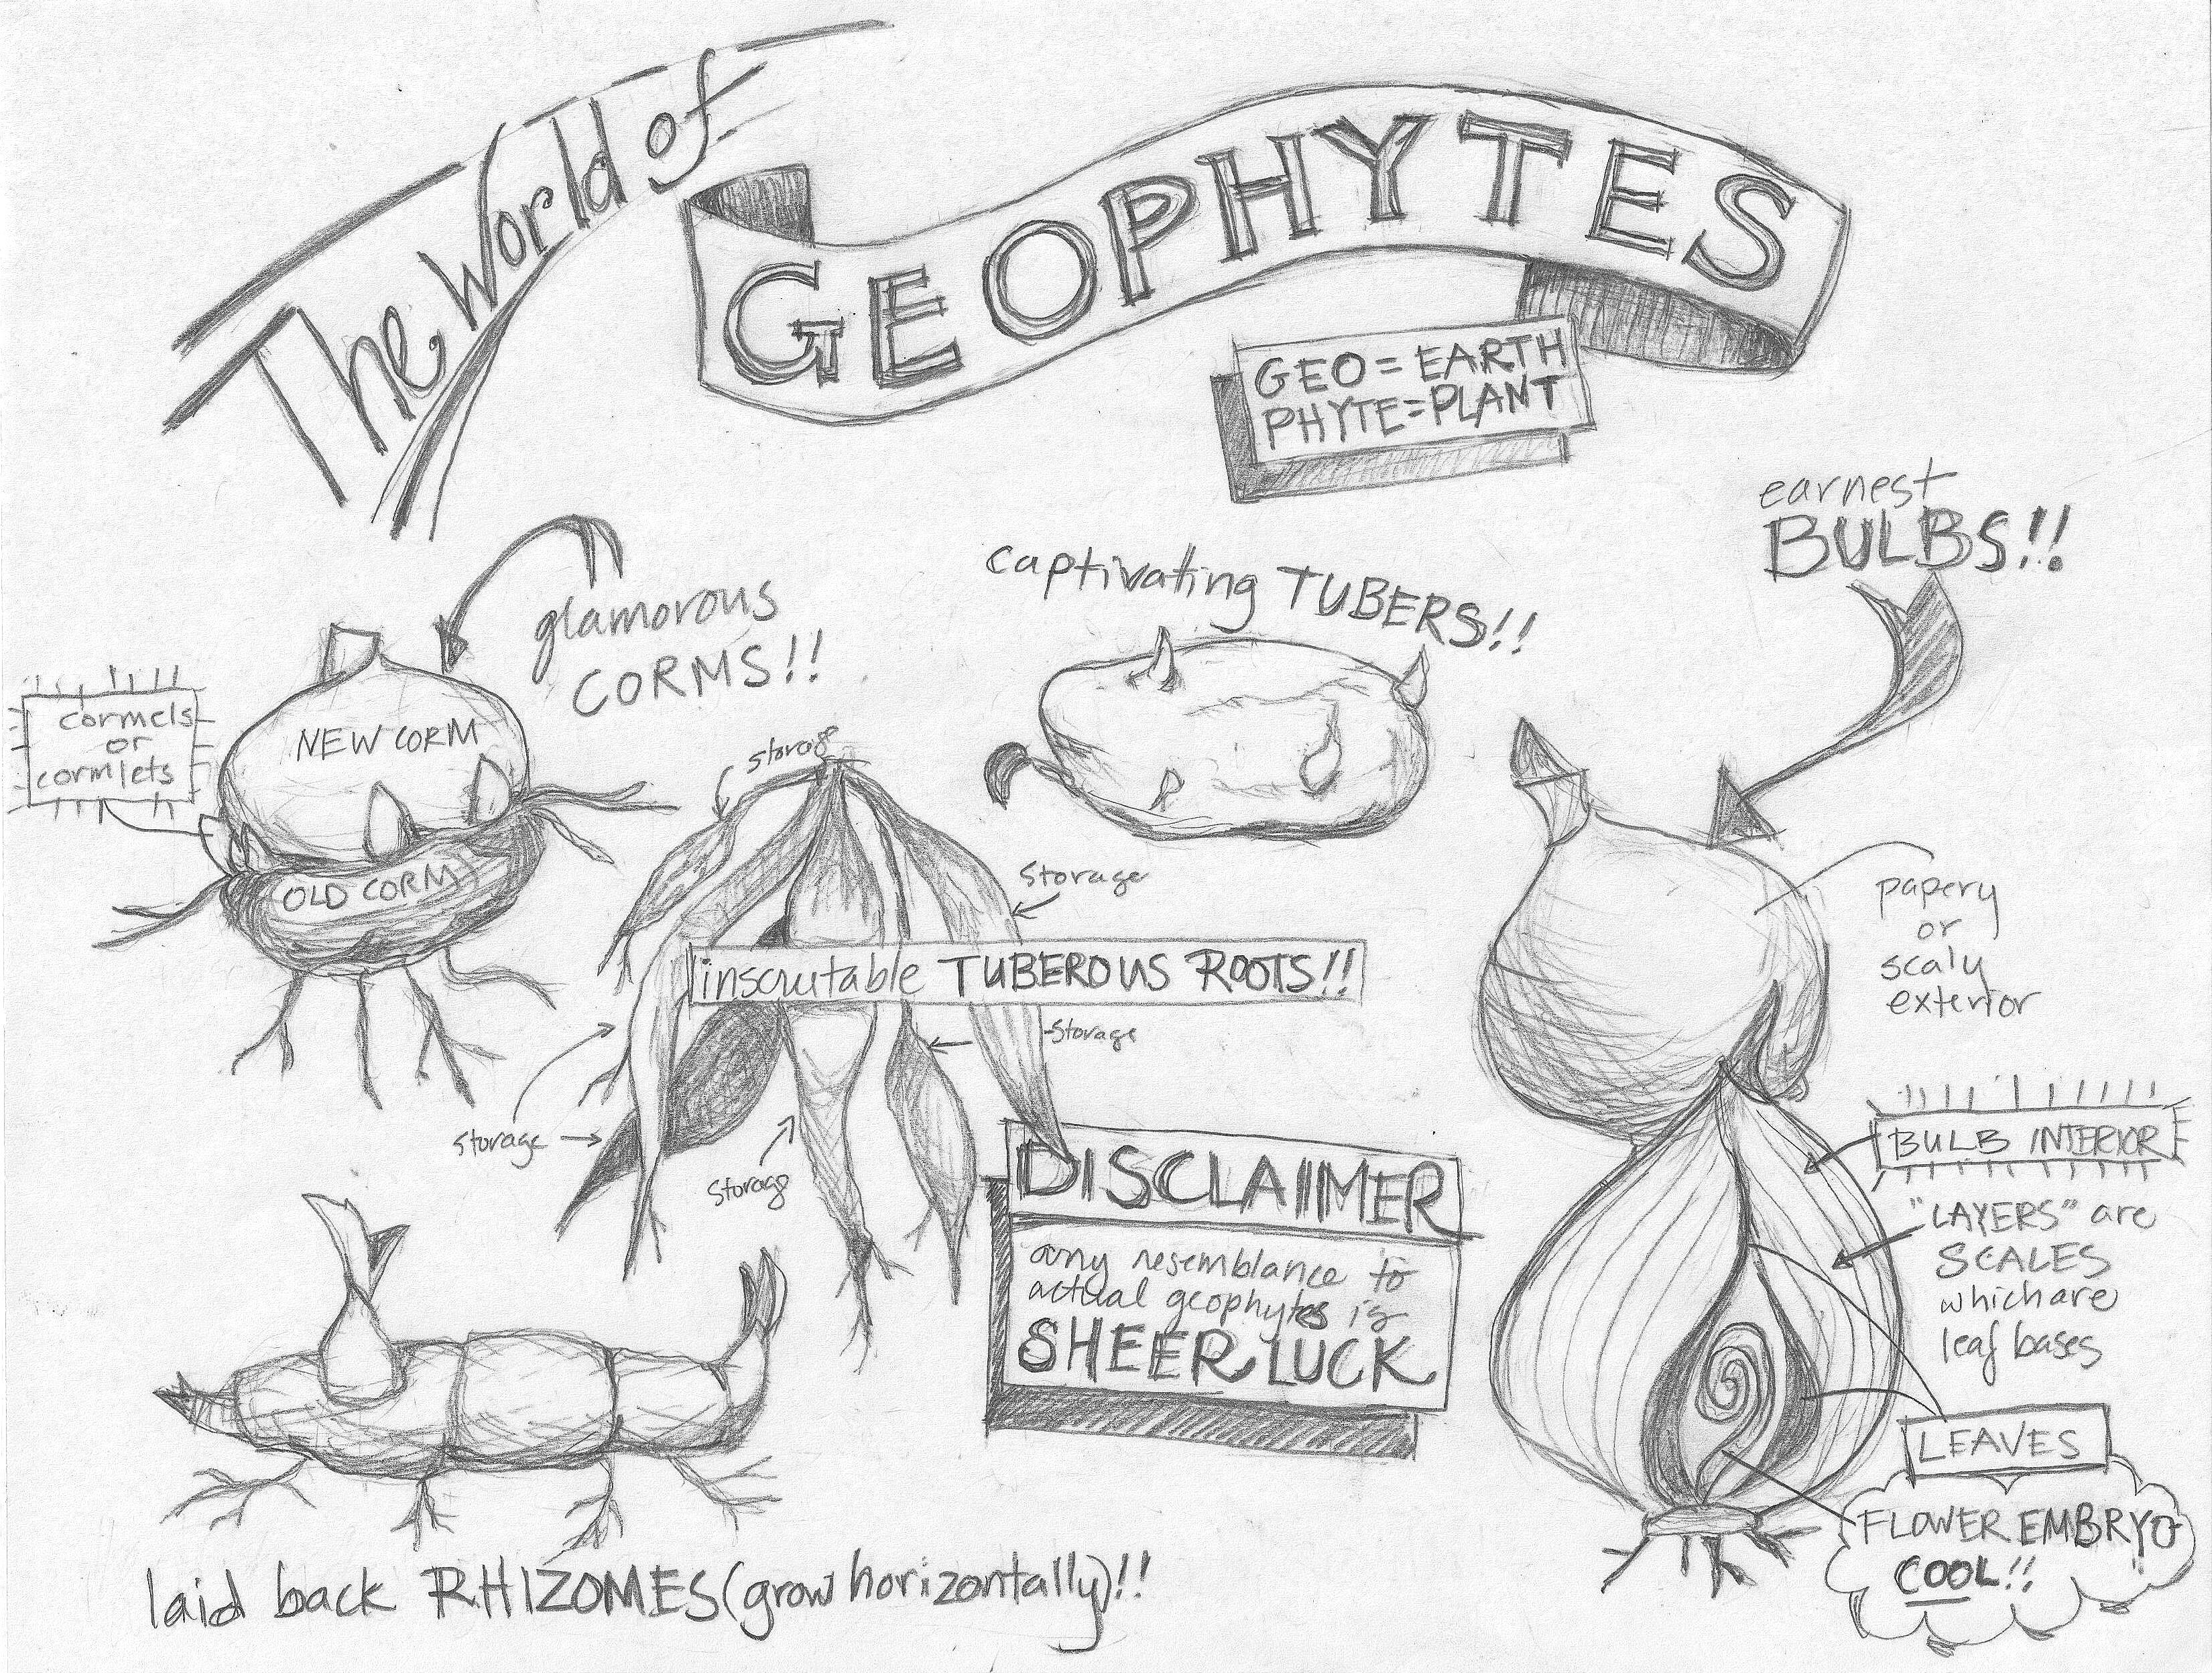 The World of
GEOPHYTES
GEO = EARTH
PHYTE = PLANT
glamorous
CORMS!!
cormels
or
cormlets
NEW CORM
OLD CORM
captivating TUBERS!!
earnest
BULBS!!
papery
or
scaly
exterior
storage
storage
inscrutable TUBEROUS ROOTS!!
storage
storage
storage
BULB INTERIOR
"LAYERS" are
SCALES
which are
leaf bases
LEAVES
FLOWER EMBRYO
COOL!!
DISCLAIMER
any resemblance to
actual geophytes is
SHEER LUCK
laid back RHIZOMES (grow horizontally)!!